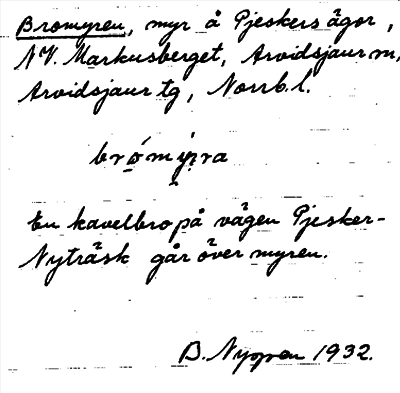 Bromyren, myr å Pjeskers ägor,
NV. Markusberget, Arvidsjaur m,
Arvidsjaur tg, Norrb. l.
brómỳra
En kavelbro på vägen Pjesker-
Nyträsk går över myren.
B. Nygren 1932.